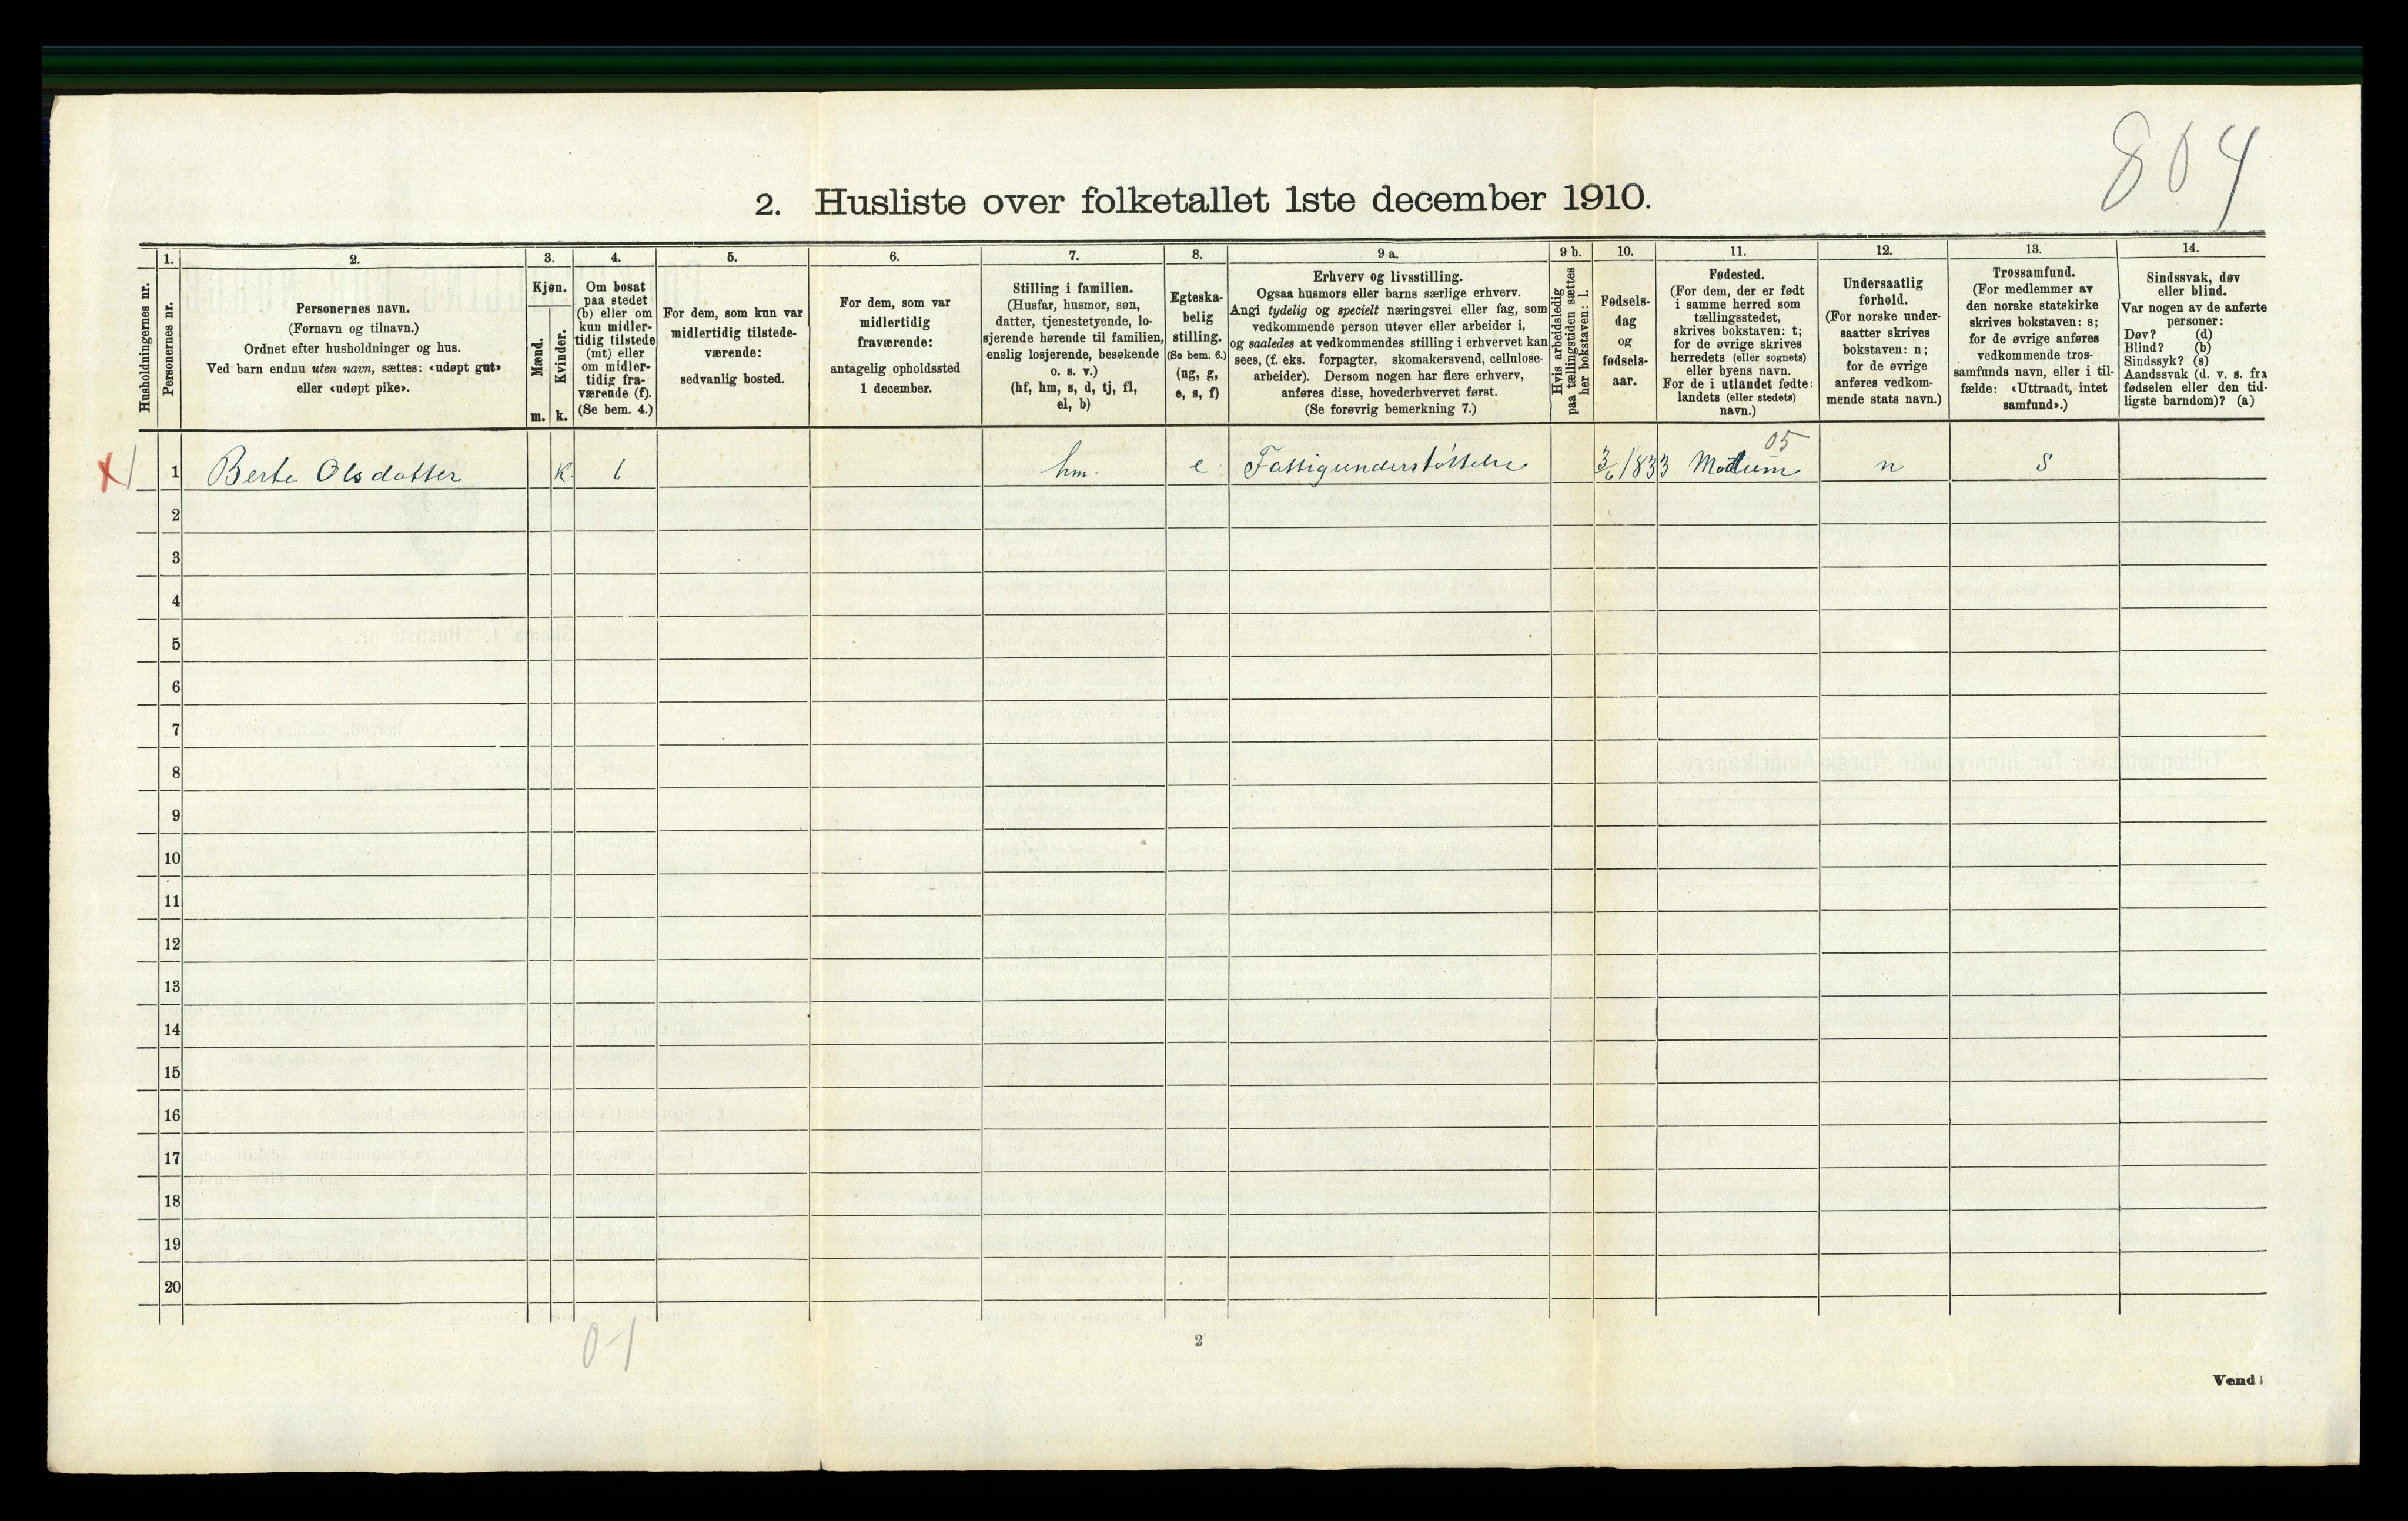 804
2. Husliste over folketallet 1ste december 1910.
Husholdningernes nr.
1.
Personernes nr.
2.
Personernes navn.
(Fornavn og tilnavn.)
Ordnet efter husholdninger og hus.
Ved barn endnu uten navn, sættes: «udøpt gut»
eller «udøpt pike».
3.
Kjøn.
Mænd.
m.
Kvinder.
k.
4.
Om bosat
paa stedet
(b) eller om
kun midler-
tidig tilstede
(mt) eller
om midler-
tidig fra-
værende (f).
(Se bem. 4.)
5.
For dem, som kun var
midlertidig tilstede-
værende:
sedvanlig bosted.
6.
For dem, som var
midlertidig
fraværende:
antagelig opholdssted
1 december.
7.
Stilling i familien.
(Husfar, husmor, søn,
datter, tjenestetyende, lo-
sjerende hørende til familien,
enslig losjerende, besøkende
o. s. v.)
(hf, hm, s, d, tj, fl,
el, b)
8.
Egteska-
belig
stilling.
(Se bem. 6.)
(ug, g,
e, s, f)
9 a.
Erhverv og livsstilling.
Ogsaa husmors eller barns særlige erhverv.
Angi tydelig og specielt næringsvei eller fag, som
vedkommende person utøver eller arbeider i,
og saaledes at vedkommendes stilling i erhvervet kan
sees, (f. eks. forpagter, skomakersvend, cellulose-
arbeider). Dersom nogen har flere erhverv,
anføres disse, hovederhvervet først.
(Se forøvrig bemerkning 7.)
9 b.
Hvis arbeidsledig
paa tællingstiden sættes
her bokstaven: l.
10.
Fødsels-
dag
og
fødsels-
aar.
11.
Fødested.
(For dem, der er født
i samme herred som
tællingsstedet,
skrives bokstaven: t;
for de øvrige skrives
herredets (eller sognets)
eller byens navn.
For de i utlandet fødte:
landets (eller stedets)
navn.)
12.
Undersaatlig
forhold.
(For norske under-
saatter skrives
bokstaven: n;
for de øvrige
anføres vedkom-
mende stats navn.)
13.
Trossamfund.
(For medlemmer av
den norske statskirke
skrives bokstaven: s;
for de øvrige anføres
vedkommende tros-
samfunds navn, eller i til-
fælde: «Uttraadt, intet
samfund».)
14.
Sindssvak, døv
eller blind.
Var nogen av de anførte
personer:
Døv? (d)
Blind? (b)
Sindssyk? (s)
Aandssvak (d. v. s. fra
fødselen eller den tid-
ligste barndom)? (a)
05
X 1 1 Berte Olsdatter K. b hm. e Fattigunderstøttelse 3/6 1833 Modum n s
2
3
4
5
6
7
8
9
10
11
12
13
14
15
16
17
18
19
20
0-1
2
Vend!